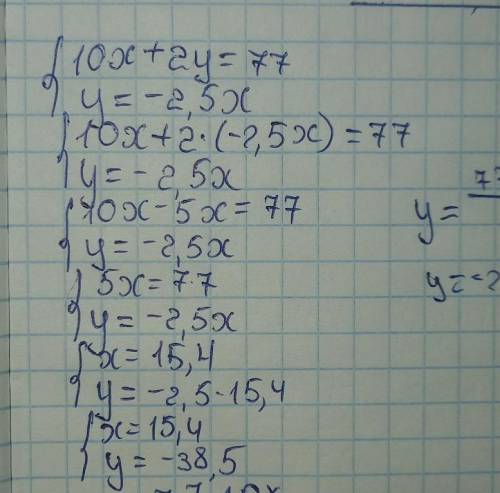 10x + 2y = 77
y = -2,5x
10x + 2·(-2,5x) = 77
y = -2,5x
10x - 5x = 77
y = -2,5x
5x = 7.7
y = -2,5x
x = 15,4
y = -2,5·15,4
x = 15,4
y = -38,5
y = 77
y = -2